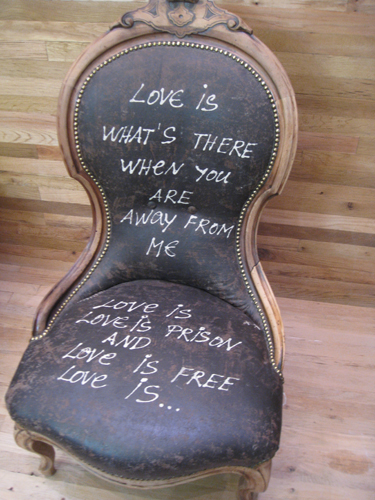 LOVE is
WHAT'S THERE
WHEN YOU
ARE
AWAY FROM
ME
LOVE is
LOVE is PRISON
AND
LOVE is FREE
LOVE is...